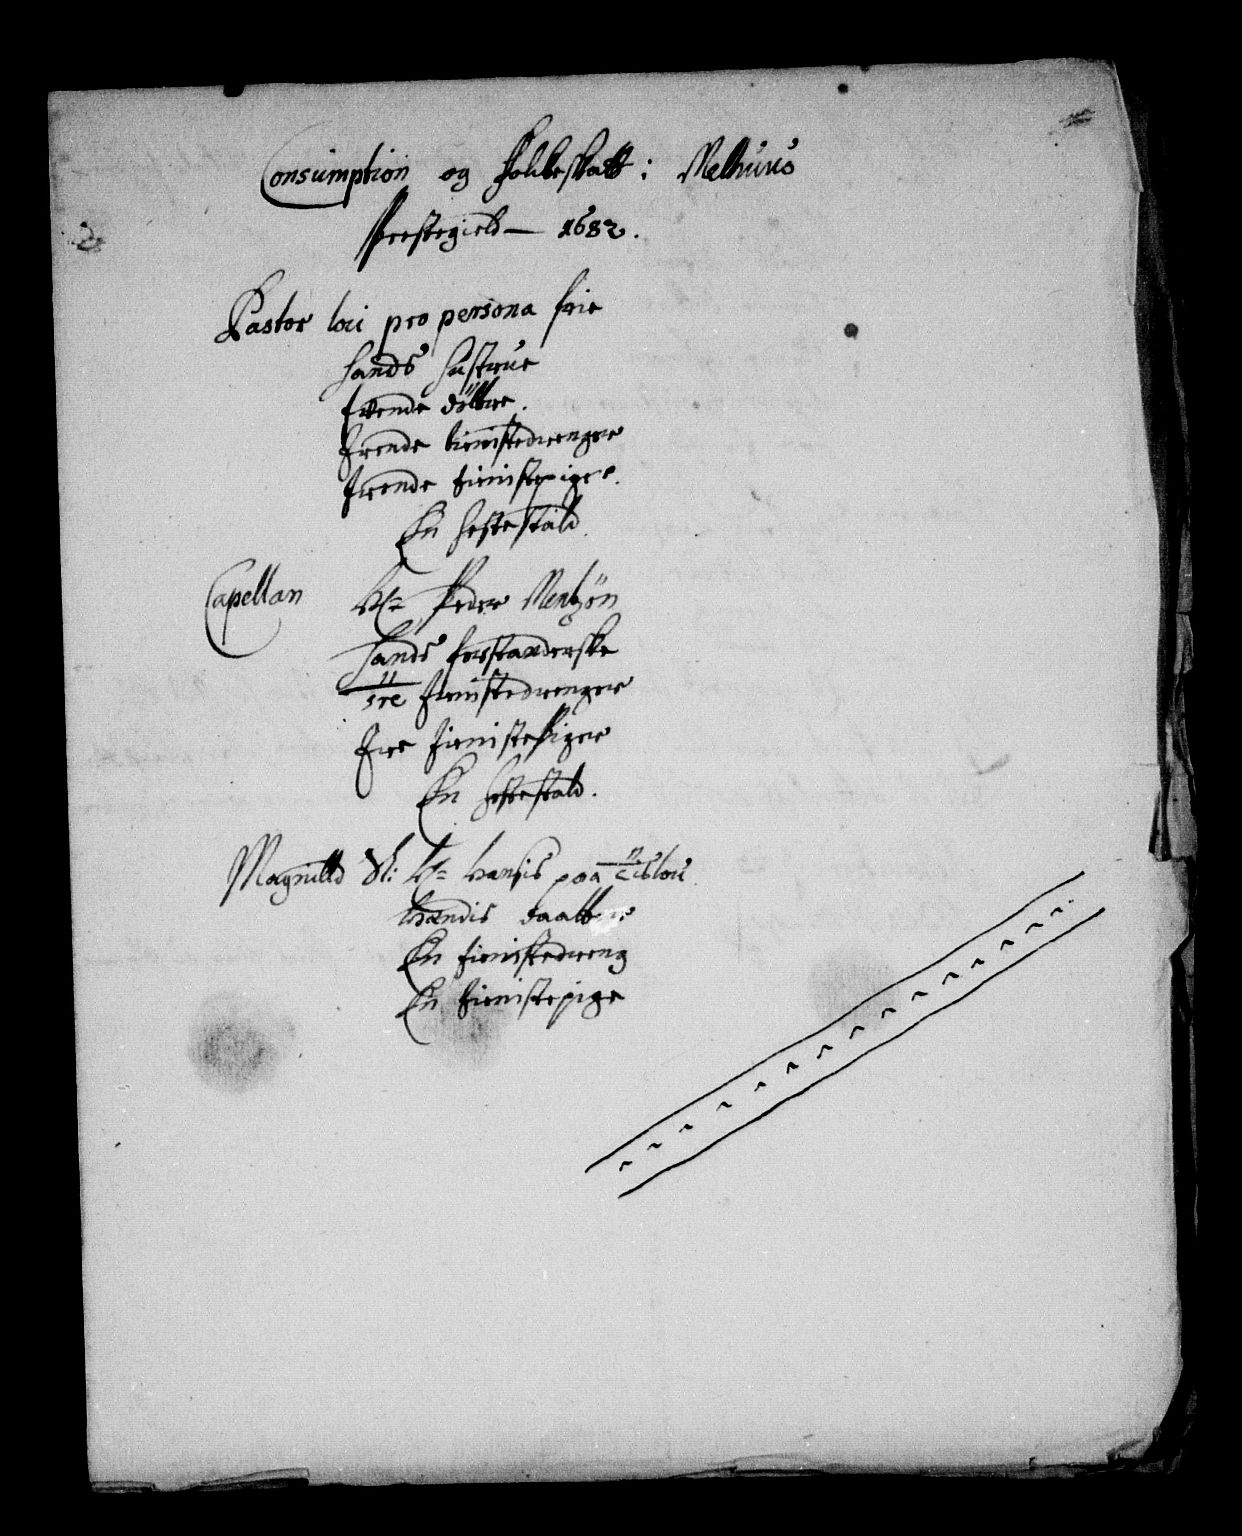 Consumption og Folkeskatt i Melhuus
Prestegield — 1682.
Pastor loci pro persona frie
Hands Hustrue
Trende døttre.
Trende tienistedrenger
Trende tienistepiger.
En Hestestald.
Capellan Hr= Peder Mentzön
Hands forstanderske
Tienistedrenger
Tre tienistePiger
En Hestestald.
Magnilld Sl: Hr= Hansis paa
Hændis daatter
En tienistedreng
En tienistepige